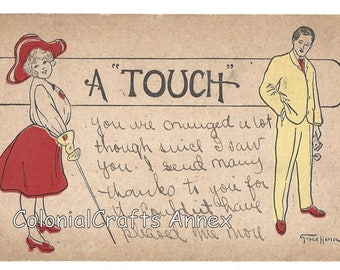 A "TOUCH"
You've changed a lot
though since I saw
you. I send many
thanks to you for
it couldn't have
pleased me more
ColonialCrafts Annex